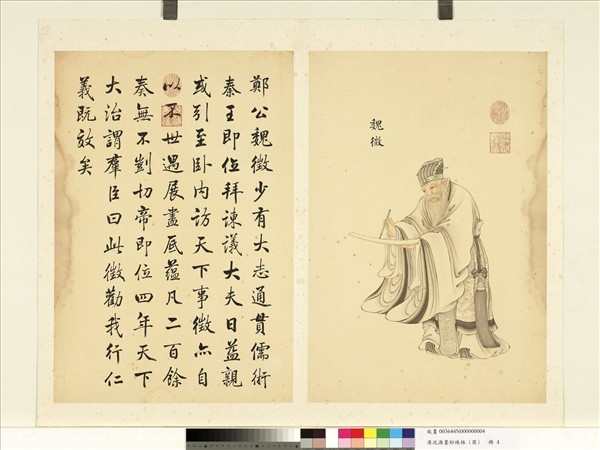 魏徵
鄭公魏徵少有大志通貫儒術
秦王即位拜諫議大夫日益親
或引至卧内訪天下事徵亦自
以不世遇展盡底蘊凡二百餘
奏無不剴切帝即位四年天下
大治謂羣臣曰此徵勸我行仁
義既效矣
故畫 003644N000000004
清沈源墨妙珠林(酉) 冊 4